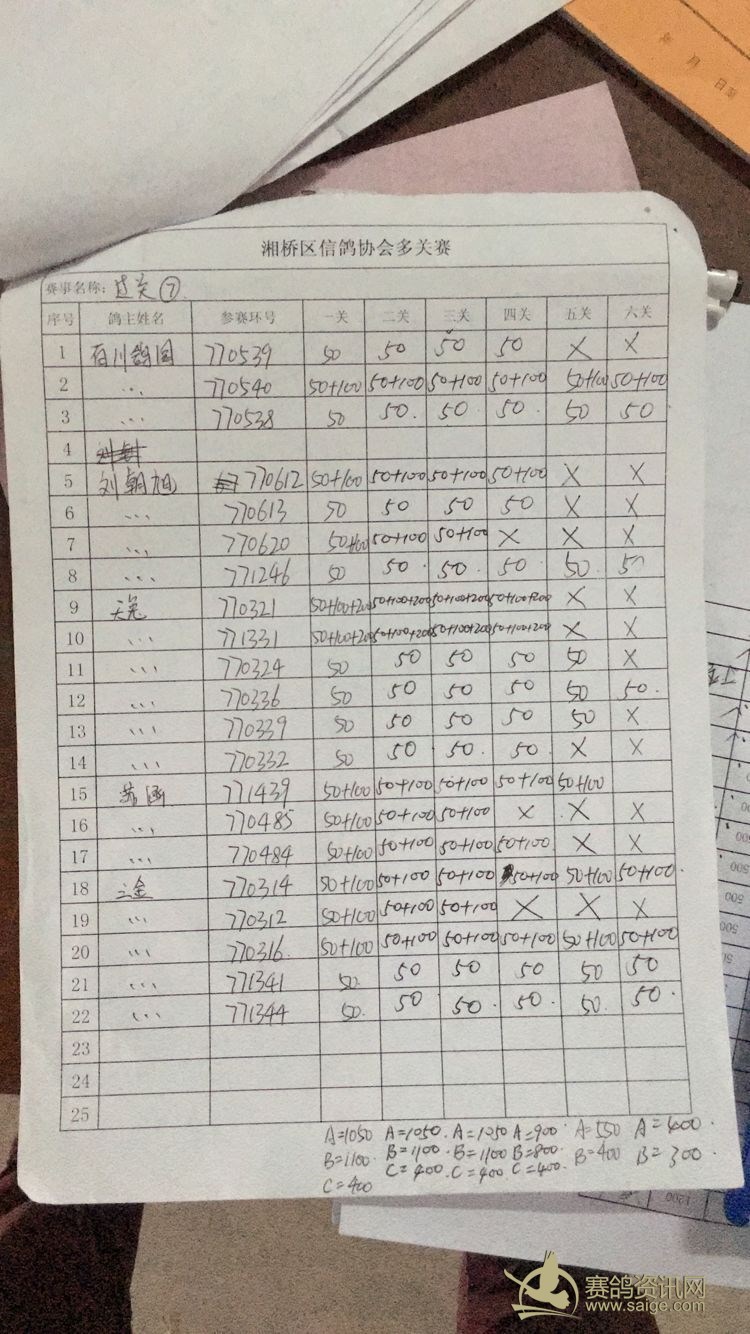 年 月 日
湘桥区信鸽协会多关赛
赛事名称: 过关⑦
序号 鸽主姓名 参赛环号 一关 二关 三关 四关 五关 六关
1 百川鸽园 770539 50 50 50 50 X X
2 〃 770540 50+100 50+100 50+100 50+100 50+100 50+100
3 〃 770538 50 50. 50. 50. 50 50
4
5 刘朝旭 770612 50+100 50+100 50+100 50+100 X X
6 〃 770613 50 50 50 50 X X
7 〃 770620 50+100 50+100 50+100 X X X
8 〃 771246 50 50. 50. 50. 50. 50
9 770321 50+100+200 50+100+200 50+100+200 50+100+200 X X
10 〃 771331 50+100+200 50+100+200 50+100+200 50+100+200 X X
11 〃 770324 50 50 50 50 50 X
12 〃 770336 50 50 50 50 50 50.
13 〃 770339 50 50 50 50 50 X
14 〃 770332 50 50 50. 50. X X
15 771439 50+100 50+100 50+100 50+100 50+100
16 〃 770485 50+100 50+100 50+100 X X X
17 〃 770484 50+100 50+100 50+100 50+100 X X
18 三金 770314 50+100 50+100 50+100 50+100 50+100 50+100.
19 〃 770312 50+100 50+100 50+100 X X X
20 〃 770316. 50+100 50+100 50+100 50+100 50+100 50+100
21 〃 771341 50. 50 50 50 50 50
22 〃 771344 50. 50 50. 50. 50. 50.
23
24
25
A=1050 A=1050. A=1050 A=900. A=550 A=400.
B=1100. B=1100. B=1100 B=800. B=400 B=300.
C=400 C=400. C=400 C=400.
赛鸽资讯网
www.saige.com